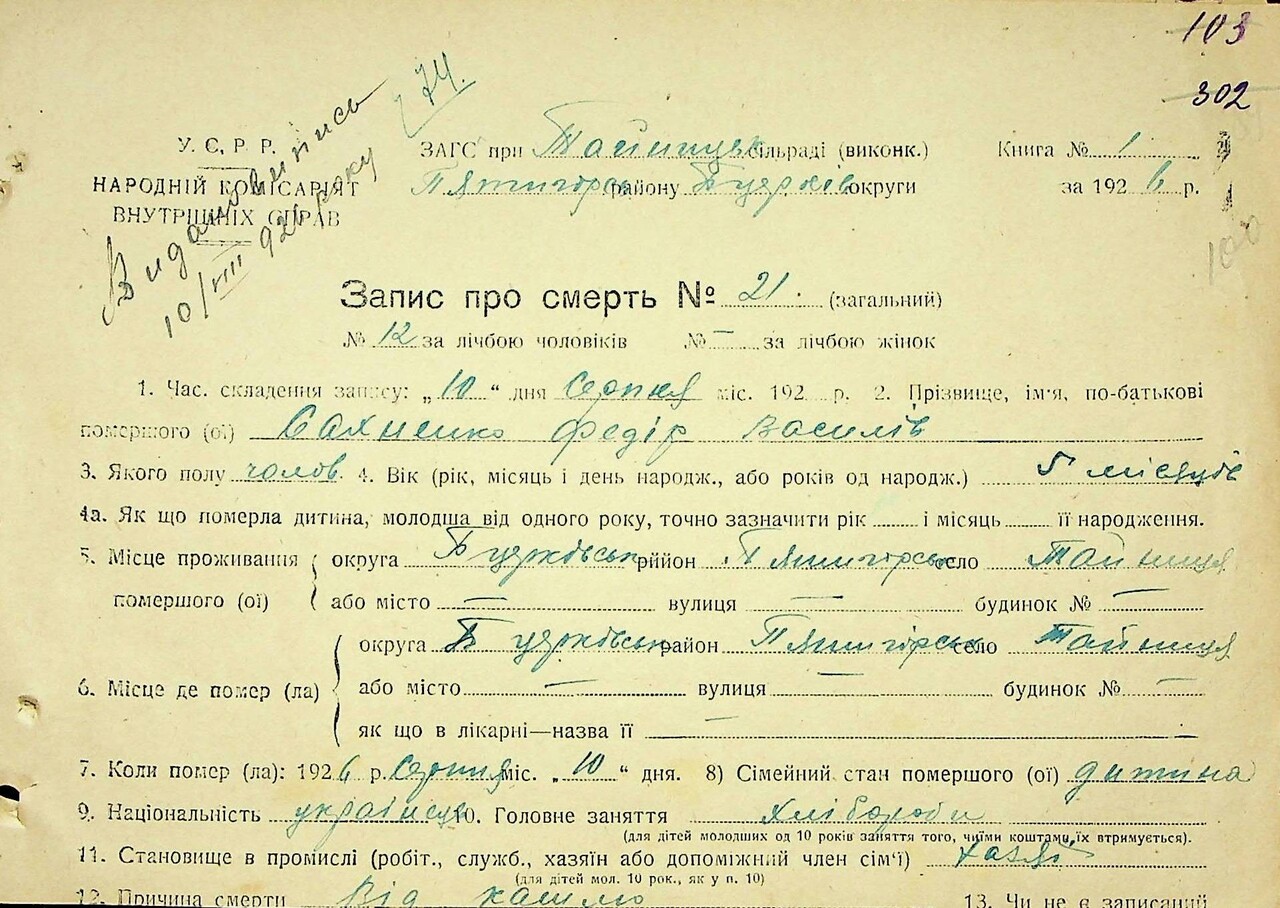 103
302
74.
Видано випись
10/VIII 926 року
У. С. Р. Р.
НАРОДНІЙ КОМІСАРІЯТ
ВНУТРІШНІХ СПРАВ
ЗАГС при Тайницьк сільраді (виконк.) Книга № 1
Пятигорськ району Бцерків округи за 1926 р.
100
Запис про смерть № 21. (загальний)
№ 12 за лічбою чоловіків № — за лічбою жінок
1. Час складення запису: „10“ дня Серпня міс. 192 р. 2. Прізвище, ім'я, по-батькові
помершого (ої) Сахненко Федір Василів
3. Якого полу чолов. 4. Вік (рік, місяць і день народж., або років од народж.) 5 місяців
4а. Як що померла дитина, молодша від одного року, точно зазначити рік і місяць її народження.
5. Місце проживання помершого (ої) округа Бцерківськ район Пятигорськ село Тайниця
або місто — вулиця — будинок № —
6. Місце де помер (ла) округа Бцерківськ район Пятигорськ село Тайниця
або місто — вулиця — будинок № —
як що в лікарні—назва її —
7. Коли помер (ла): 1926 р. Серпня міс. „10“ дня. 8) Сімейний стан помершого (ої) дитина
9. Національність українець 10. Головне заняття хлібороби
(для дітей молодших од 10 років заняття того, чиїми коштами їх втримується).
11. Становище в промислі (робіт., служб., хазяїн або допоміжний член сім'ї)
(для дітей мол. 10 рок., як у п. 10)
12. Причина смерти Від кашлю 13. Чи не є записаний